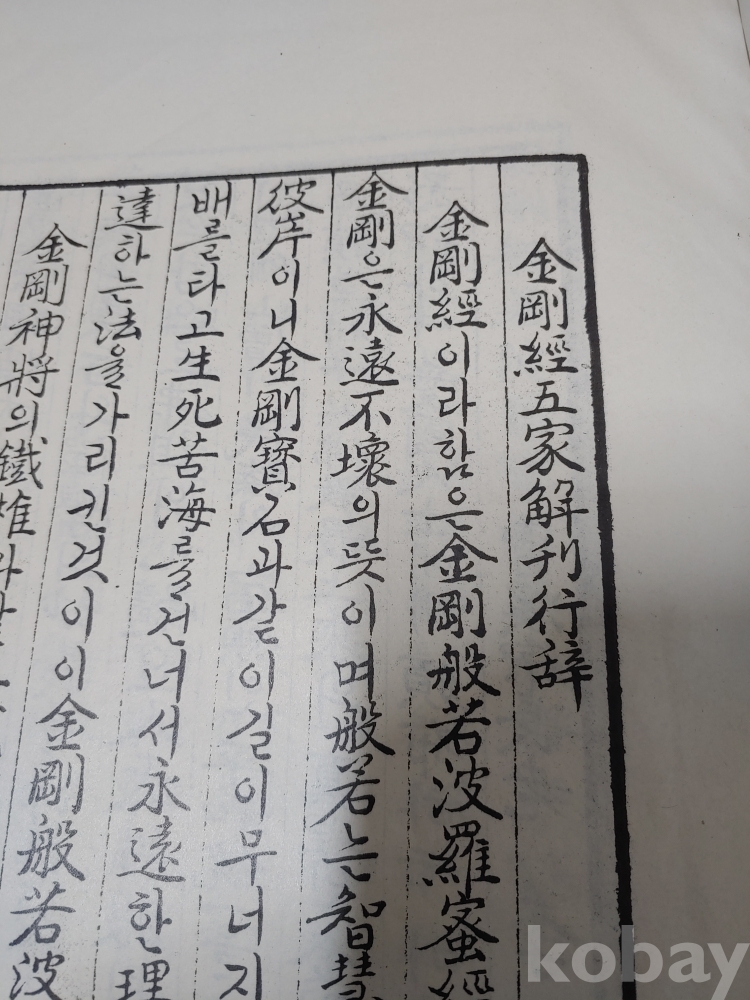 金剛經五家解刋行辞
金剛經이라함은金剛般若波羅蜜經
金剛은永遠不壞의뜻이며般若는智慧
彼岸이니金剛寶石과같이길이무너지
배를타고生死苦海를건너서永遠한理
達하는法을가리킨것이이金剛般若波
金剛神將의鐵椎와
kobay